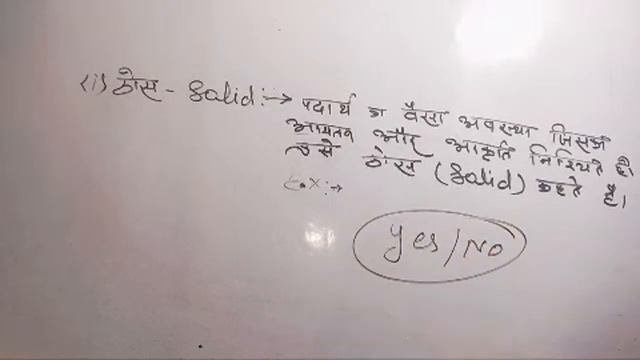 (i) ठोस - Salid :→ पदार्थ का वैसा अवस्था जिसका
आयतन और आकृति निश्चित हो
उसे ठोस (Salid) कहते है।
Ex :→
Yes/No